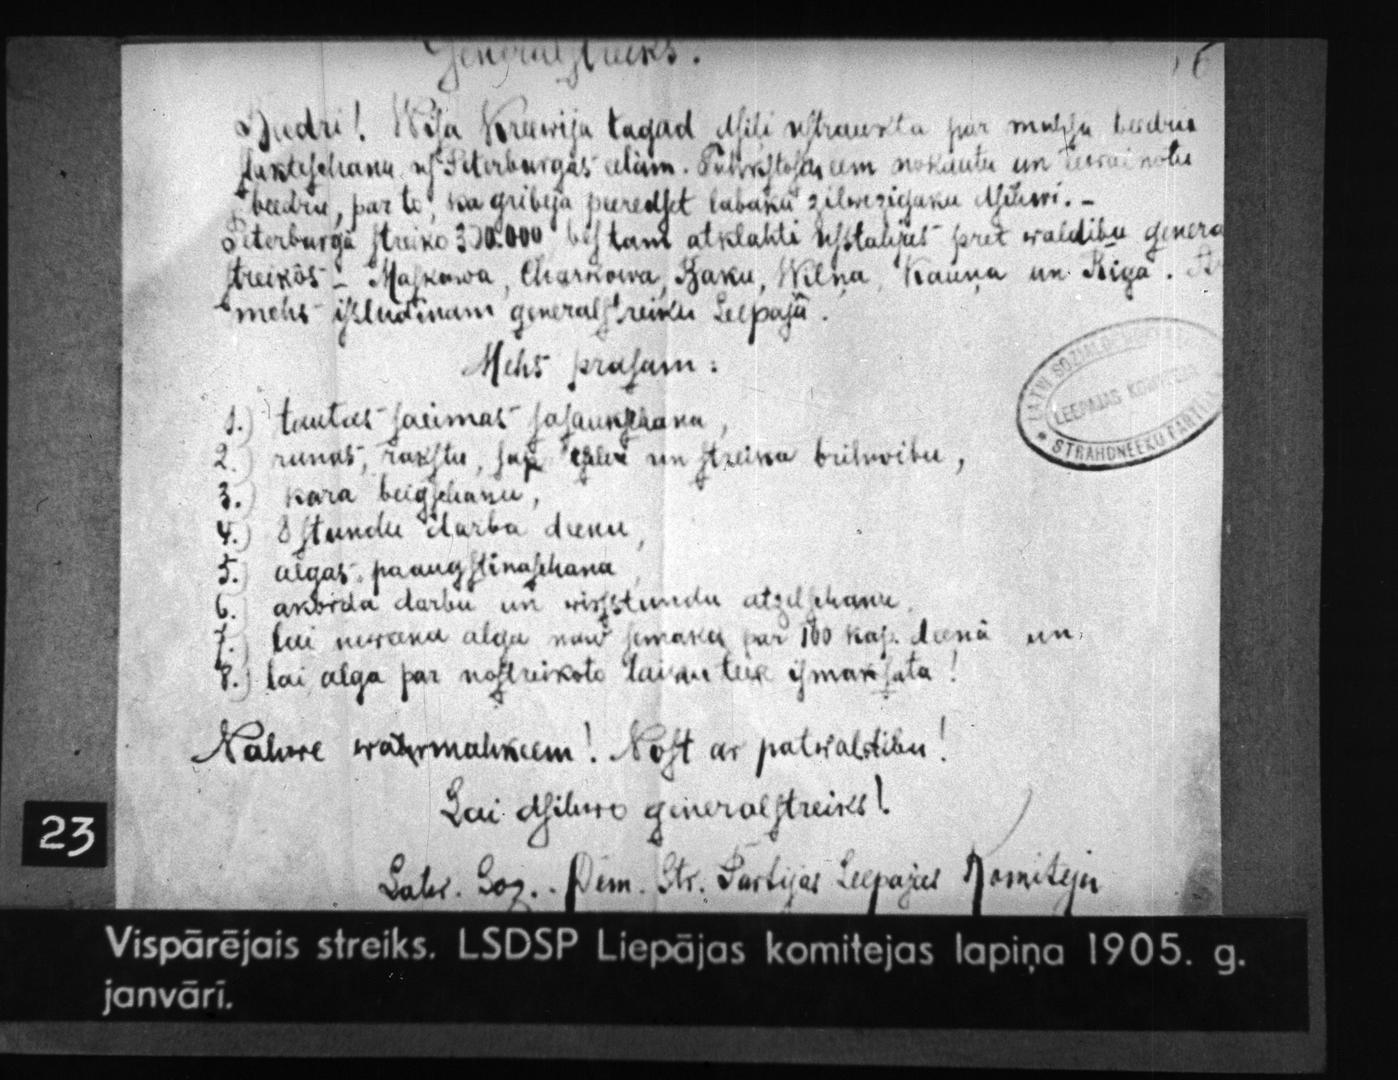 Generalstreiks.
Beedri! Wisa Kreewija tagad dsiļi ustraukta par muhsu beedru
slakteschanu us Peterburgas eelam. Tuhkstoscheem nokautu un eewainotu
beedru, par to, ka gribeja peeredset labaku zilwezigaku dsihwi. –
Peterburgā streiko 300.000, bes tam atklahti usstahjas pret waldibu genera
streikôs – Maskawa, Charkowa, Baku, Wilņa, Kauņa un Riga.
mehs issludinam generalstreiku Leepajā.
Mehs prasam:
1.) tautas saeimas sasaukschanu,
2.) runas, rakstu, sapulzes un streika brihwibu,
3.) kara beigschanu,
4.) 8 stundu darba deenu,
5.) algas paaugstinaschanu
6. akorda darbu un wirsstundu atzelschanu.
7.) lai neweena alga naw semaka par 100 kap. deenā un
8.) lai alga par nostreikoto laiku teek ismaksata!
Nahwe warmahkeem! Nost ar patwaldibu!
Lai dsihwo generalstreiks!
Latw. Soz. - Dem. Str. Partijas Leepajas Komiteja
STRAHDNEEKU PARTIJA
LEEPAJAS KOMITEJA
23
Vispārējais streiks. LSDSP Liepājas komitejas lapiņa 1905. g.
janvārī.